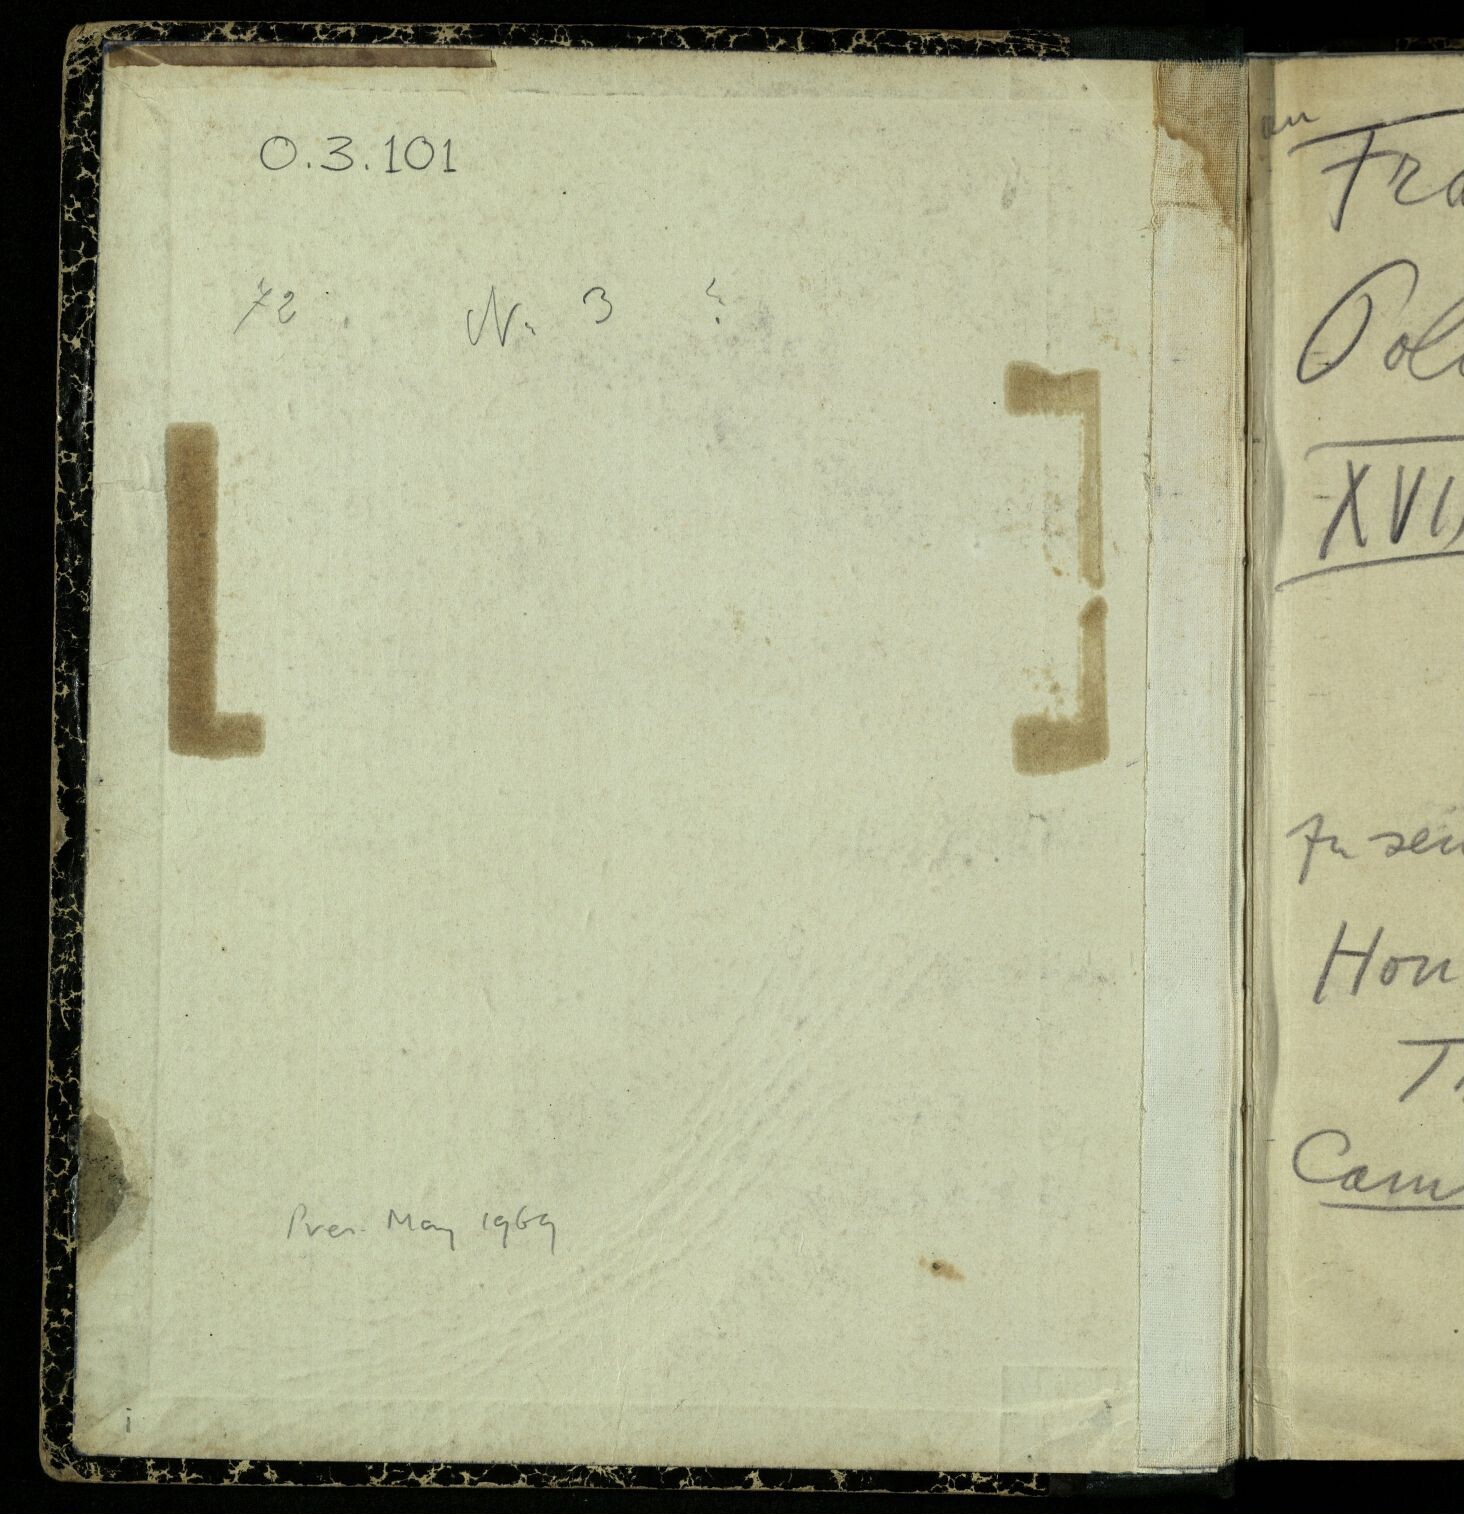 O.3.101
72 No 3 ?
Pres. May 1969
i
an
Fra
Pol
XVI
zu sei
Hon
T
Cam